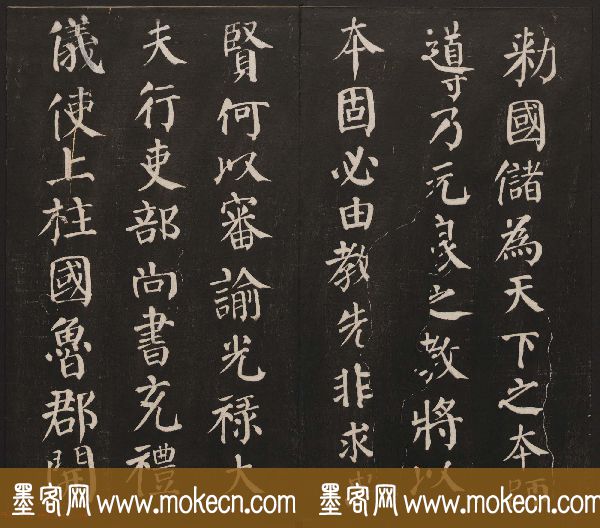 勑國儲為天下之本師
導乃元良之教將以
本固必由教先非求
賢何以審諭光祿大
夫行吏部尚書充禮
儀使上柱國魯郡開
墨客网 www.mokecn.com 墨客网 www.mokecn.com